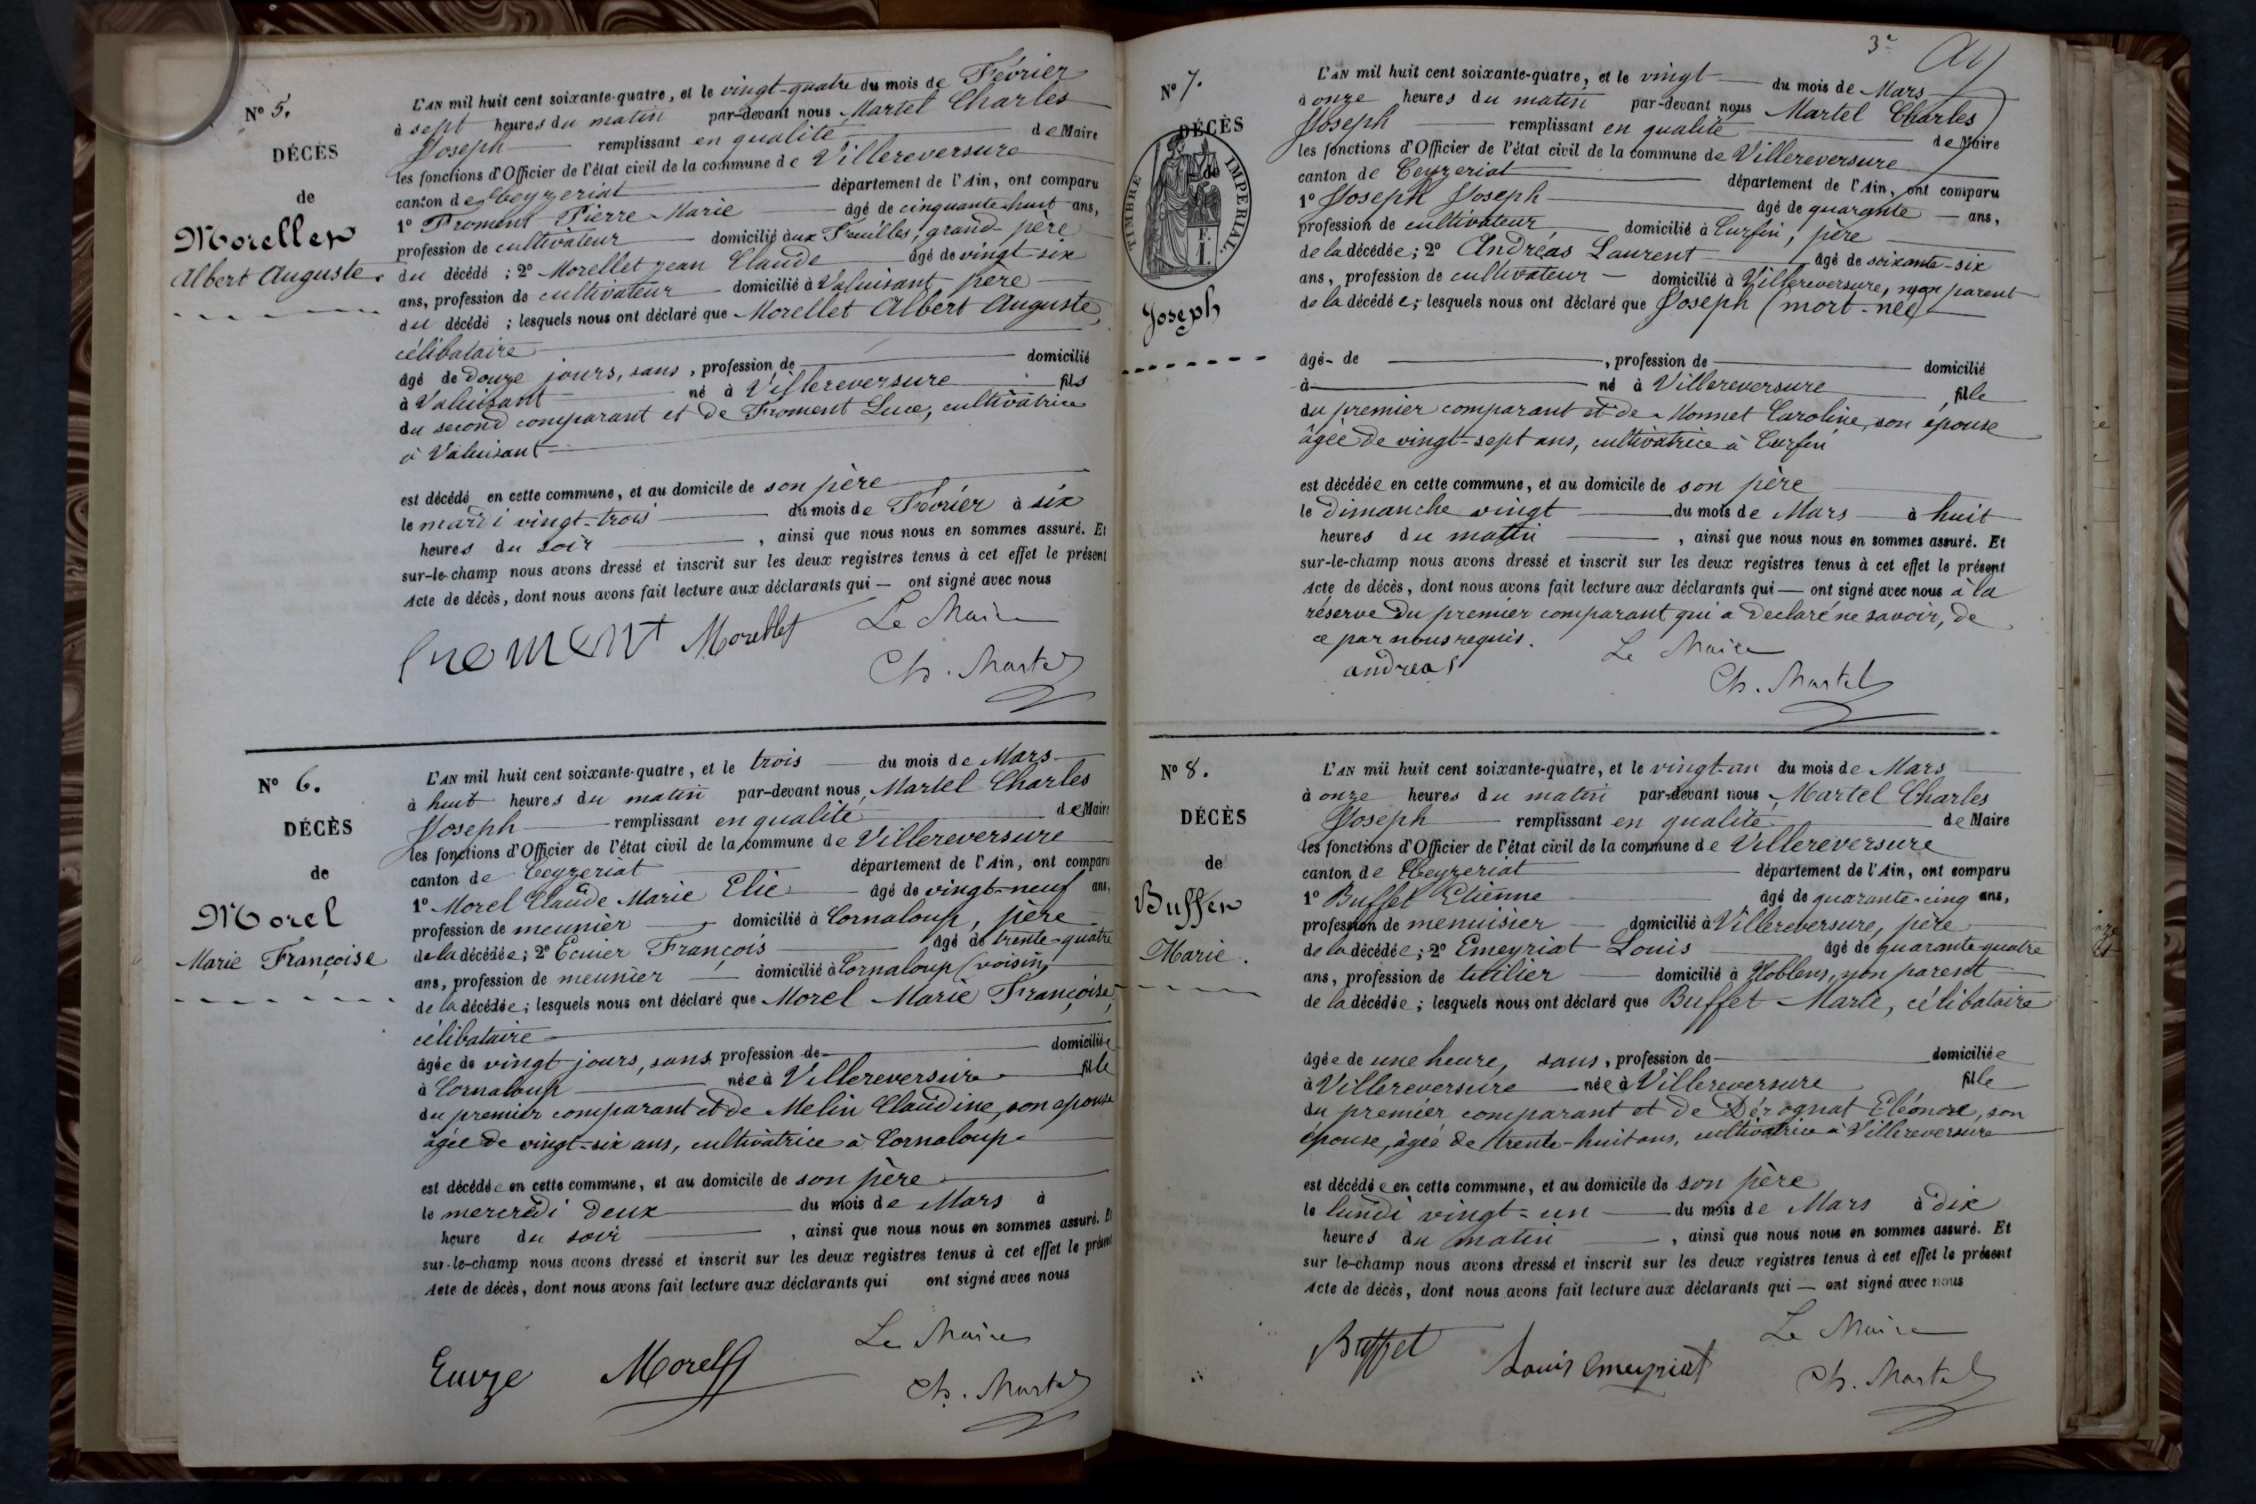 N° 5.
DÉCÈS
de
Morellet
Albert Auguste.
L'AN mil huit cent soixante-quatre, et le vingt-quatre du mois de Février
à sept heures du matin par-devant nous Martel Charles
Joseph remplissant en qualité de Maire
les fonctions d'Officier de l'état civil de la commune de Villereversure
canton de Ceyzeriat département de l'Ain, ont comparu
1° Froment Pierre Marie âgé de cinquante-huit ans,
profession de cultivateur domicilié aux Feuilles, grand-père
du décédé ; 2° Morellet Jean Claude âgé de vingt-six
ans, profession de cultivateur domicilié à Valuisant père
du décédé ; lesquels nous ont déclaré que Morellet Albert Auguste,
célibataire
âgé de douze jours, sans, profession de domicilié
à Valuisant né à Villereversure fils
du second comparant et de Froment Luce, cultivatrice
à Valuisant
est décédé en cette commune, et au domicile de son père
le mardi vingt-trois du mois de Février à six
heures du soir, ainsi que nous nous en sommes assuré. Et
sur-le-champ nous avons dressé et inscrit sur les deux registres tenus à cet effet le présent
Acte de décès, dont nous avons fait lecture aux déclarants qui — ont signé avec nous
froment Morellet Le Maire
Ch. Martel
N° 6.
DÉCÈS
de
Morel
Marie Françoise
L'AN mil huit cent soixante-quatre, et le trois du mois de Mars
à huit heures du matin par-devant nous Martel Charles
Joseph remplissant en qualité de Maire
les fonctions d'Officier de l'état civil de la commune de Villereversure
canton de Ceyzeriat département de l'Ain, ont comparu
1° Morel Claude Marie Elie âgé de vingt-neuf ans,
profession de meunier domicilié à Cornaloup, père
de la décédée ; 2° Ecuier François âgé de trente-quatre
ans, profession de meunier domicilié à Cornaloup (voisin)
de la décédée ; lesquels nous ont déclaré que Morel Marie Françoise,
célibataire
âgée de vingt jours, sans profession de domiciliée
à Cornaloup née à Villereversure fille
du premier comparant et de Melin Claudine, son épouse
âgée de vingt-six ans, cultivatrice à Cornaloup
est décédée en cette commune, et au domicile de son père
le mercredi deux du mois de Mars à
heure du soir, ainsi que nous nous en sommes assuré. Et
sur-le-champ nous avons dressé et inscrit sur les deux registres tenus à cet effet le présent
Acte de décès, dont nous avons fait lecture aux déclarants qui ont signé avec nous
Le Maire
Morel
Ch. Martel
3e
N° 7.
DÉCÈS
de
TIMBRE IMPERIAL
Joseph
L'AN mil huit cent soixante-quatre, et le vingt du mois de Mars
à onze heures du matin par-devant nous Martel Charles
Joseph remplissant en qualité de Maire
les fonctions d'Officier de l'état civil de la commune de Villereversure
canton de Ceyzeriat département de l'Ain, ont comparu
1° Joseph Joseph âgé de quarante ans,
profession de cultivateur domicilié à Curfin, père
de la décédée ; 2° Andréas Laurent âgé de soixante-six
ans, profession de cultivateur domicilié à Villereversure, non parent
de la décédée ; lesquels nous ont déclaré que Joseph (mort-née)
âgé de, profession de domicilié
à né à Villereversure fille
du premier comparant et de Monnet Caroline, son épouse
âgée de vingt-sept ans, cultivatrice à Curfin
est décédée en cette commune, et au domicile de son père
le dimanche vingt du mois de Mars à huit
heures du matin, ainsi que nous nous en sommes assuré. Et
sur-le-champ nous avons dressé et inscrit sur les deux registres tenus à cet effet le présent
Acte de décès, dont nous avons fait lecture aux déclarants qui — ont signé avec nous à la
réserve du premier comparant qui a déclaré ne savoir, de
ce par nous requis.
Le Maire
andreas
Ch. Martel
N° 8.
DÉCÈS
de
Buffet
Marie.
L'AN mil huit cent soixante-quatre, et le vingt-un du mois de Mars
à onze heures du matin par-devant nous Martel Charles
Joseph remplissant en qualité de Maire
les fonctions d'Officier de l'état civil de la commune de Villereversure
canton de Ceyzeriat département de l'Ain, ont comparu
1° Buffet Etienne âgé de quarante-cinq ans,
profession de menuisier domicilié à Villereversure, père
de la décédée ; 2° Emeyriat Louis âgé de quarante-quatre
ans, profession de tuilier domicilié à Noblens, non parent
de la décédée ; lesquels nous ont déclaré que Buffet Marie, célibataire
âgée de une heure, sans, profession de domiciliée
à Villereversure née à Villereversure fille
du premier comparant et de Dérognat Eléonore, son
épouse, âgée de trente-huit ans, cultivatrice à Villereversure
est décédée en cette commune, et au domicile de son père
le lundi vingt-un du mois de Mars à dix
heures du matin, ainsi que nous nous en sommes assuré. Et
sur le-champ nous avons dressé et inscrit sur les deux registres tenus à cet effet le présent
Acte de décès, dont nous avons fait lecture aux déclarants qui — ont signé avec nous
Buffet Louis Emeyriat Le Maire
Ch. Martel